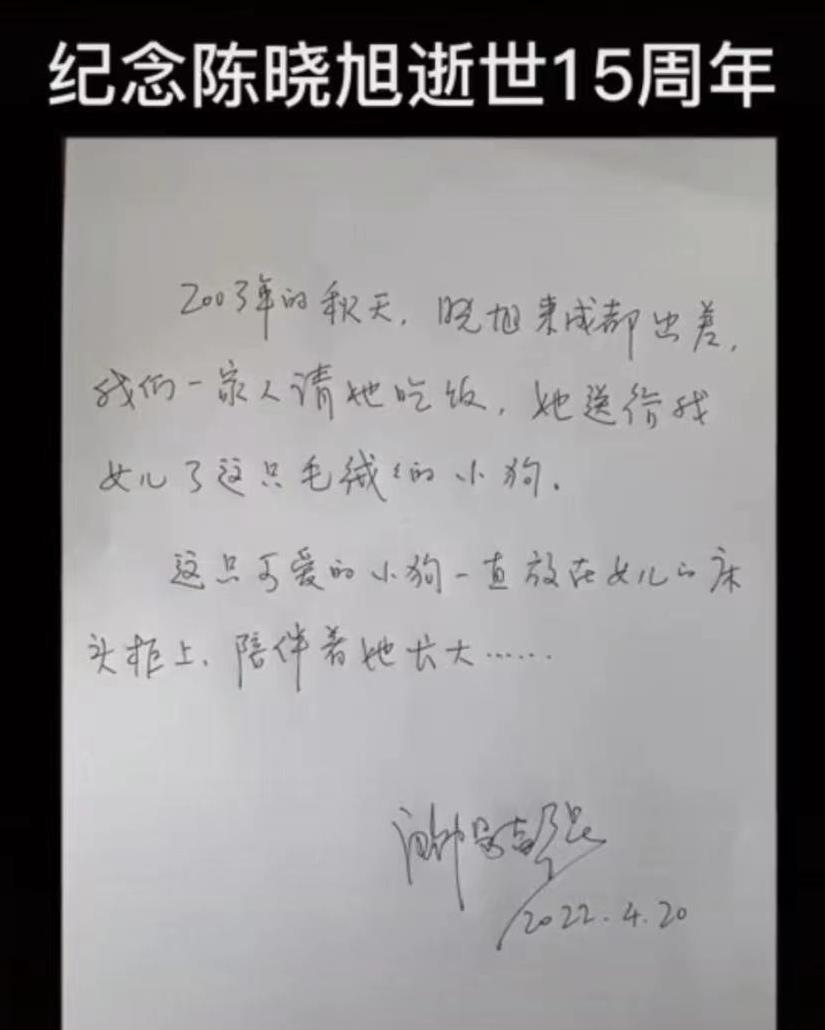 纪念陈晓旭逝世15周年
2003年的秋天，晓旭来成都出差，
我们一家人请她吃饭，她送给我
女儿了这只毛绒绒的小狗。
这只可爱的小狗一直放在女儿的床
头柜上，陪伴着她长大……
2022.4.20